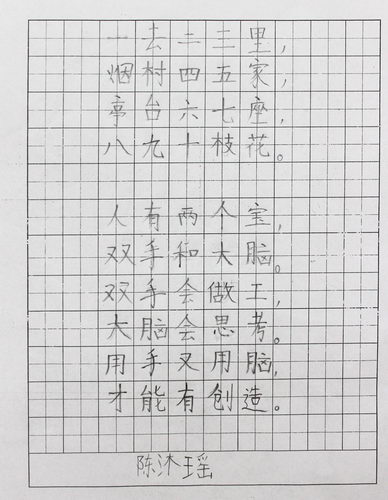 一去二三里，
烟村四五家，
亭台六七座，
八九十枝花。
人有两个宝，
双手和大脑。
双手会做工，
大脑会思考。
用手又用脑，
才能有创造。
陈沐瑶